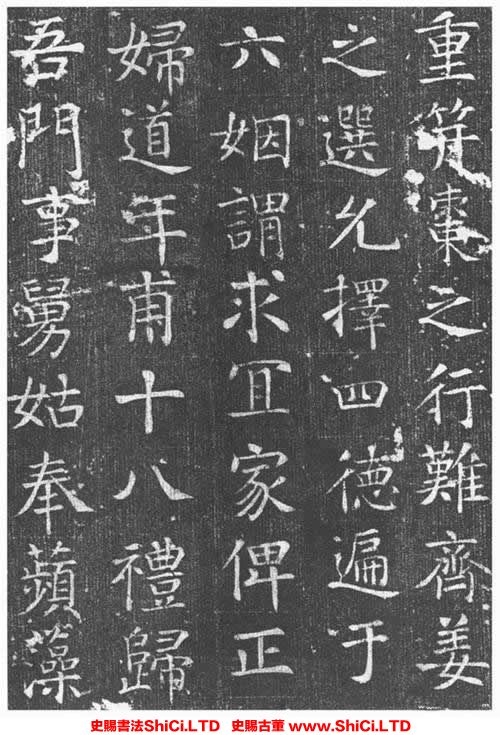 重棗之行難齊姜
之選允擇四徳遍于
六姻謂求冝家俾正
婦道年甫十八禮歸
吾門事舅姑奉蘋藻
史賜書法ShiCi.LTD 史賜古董 www.ShiCi.LTD